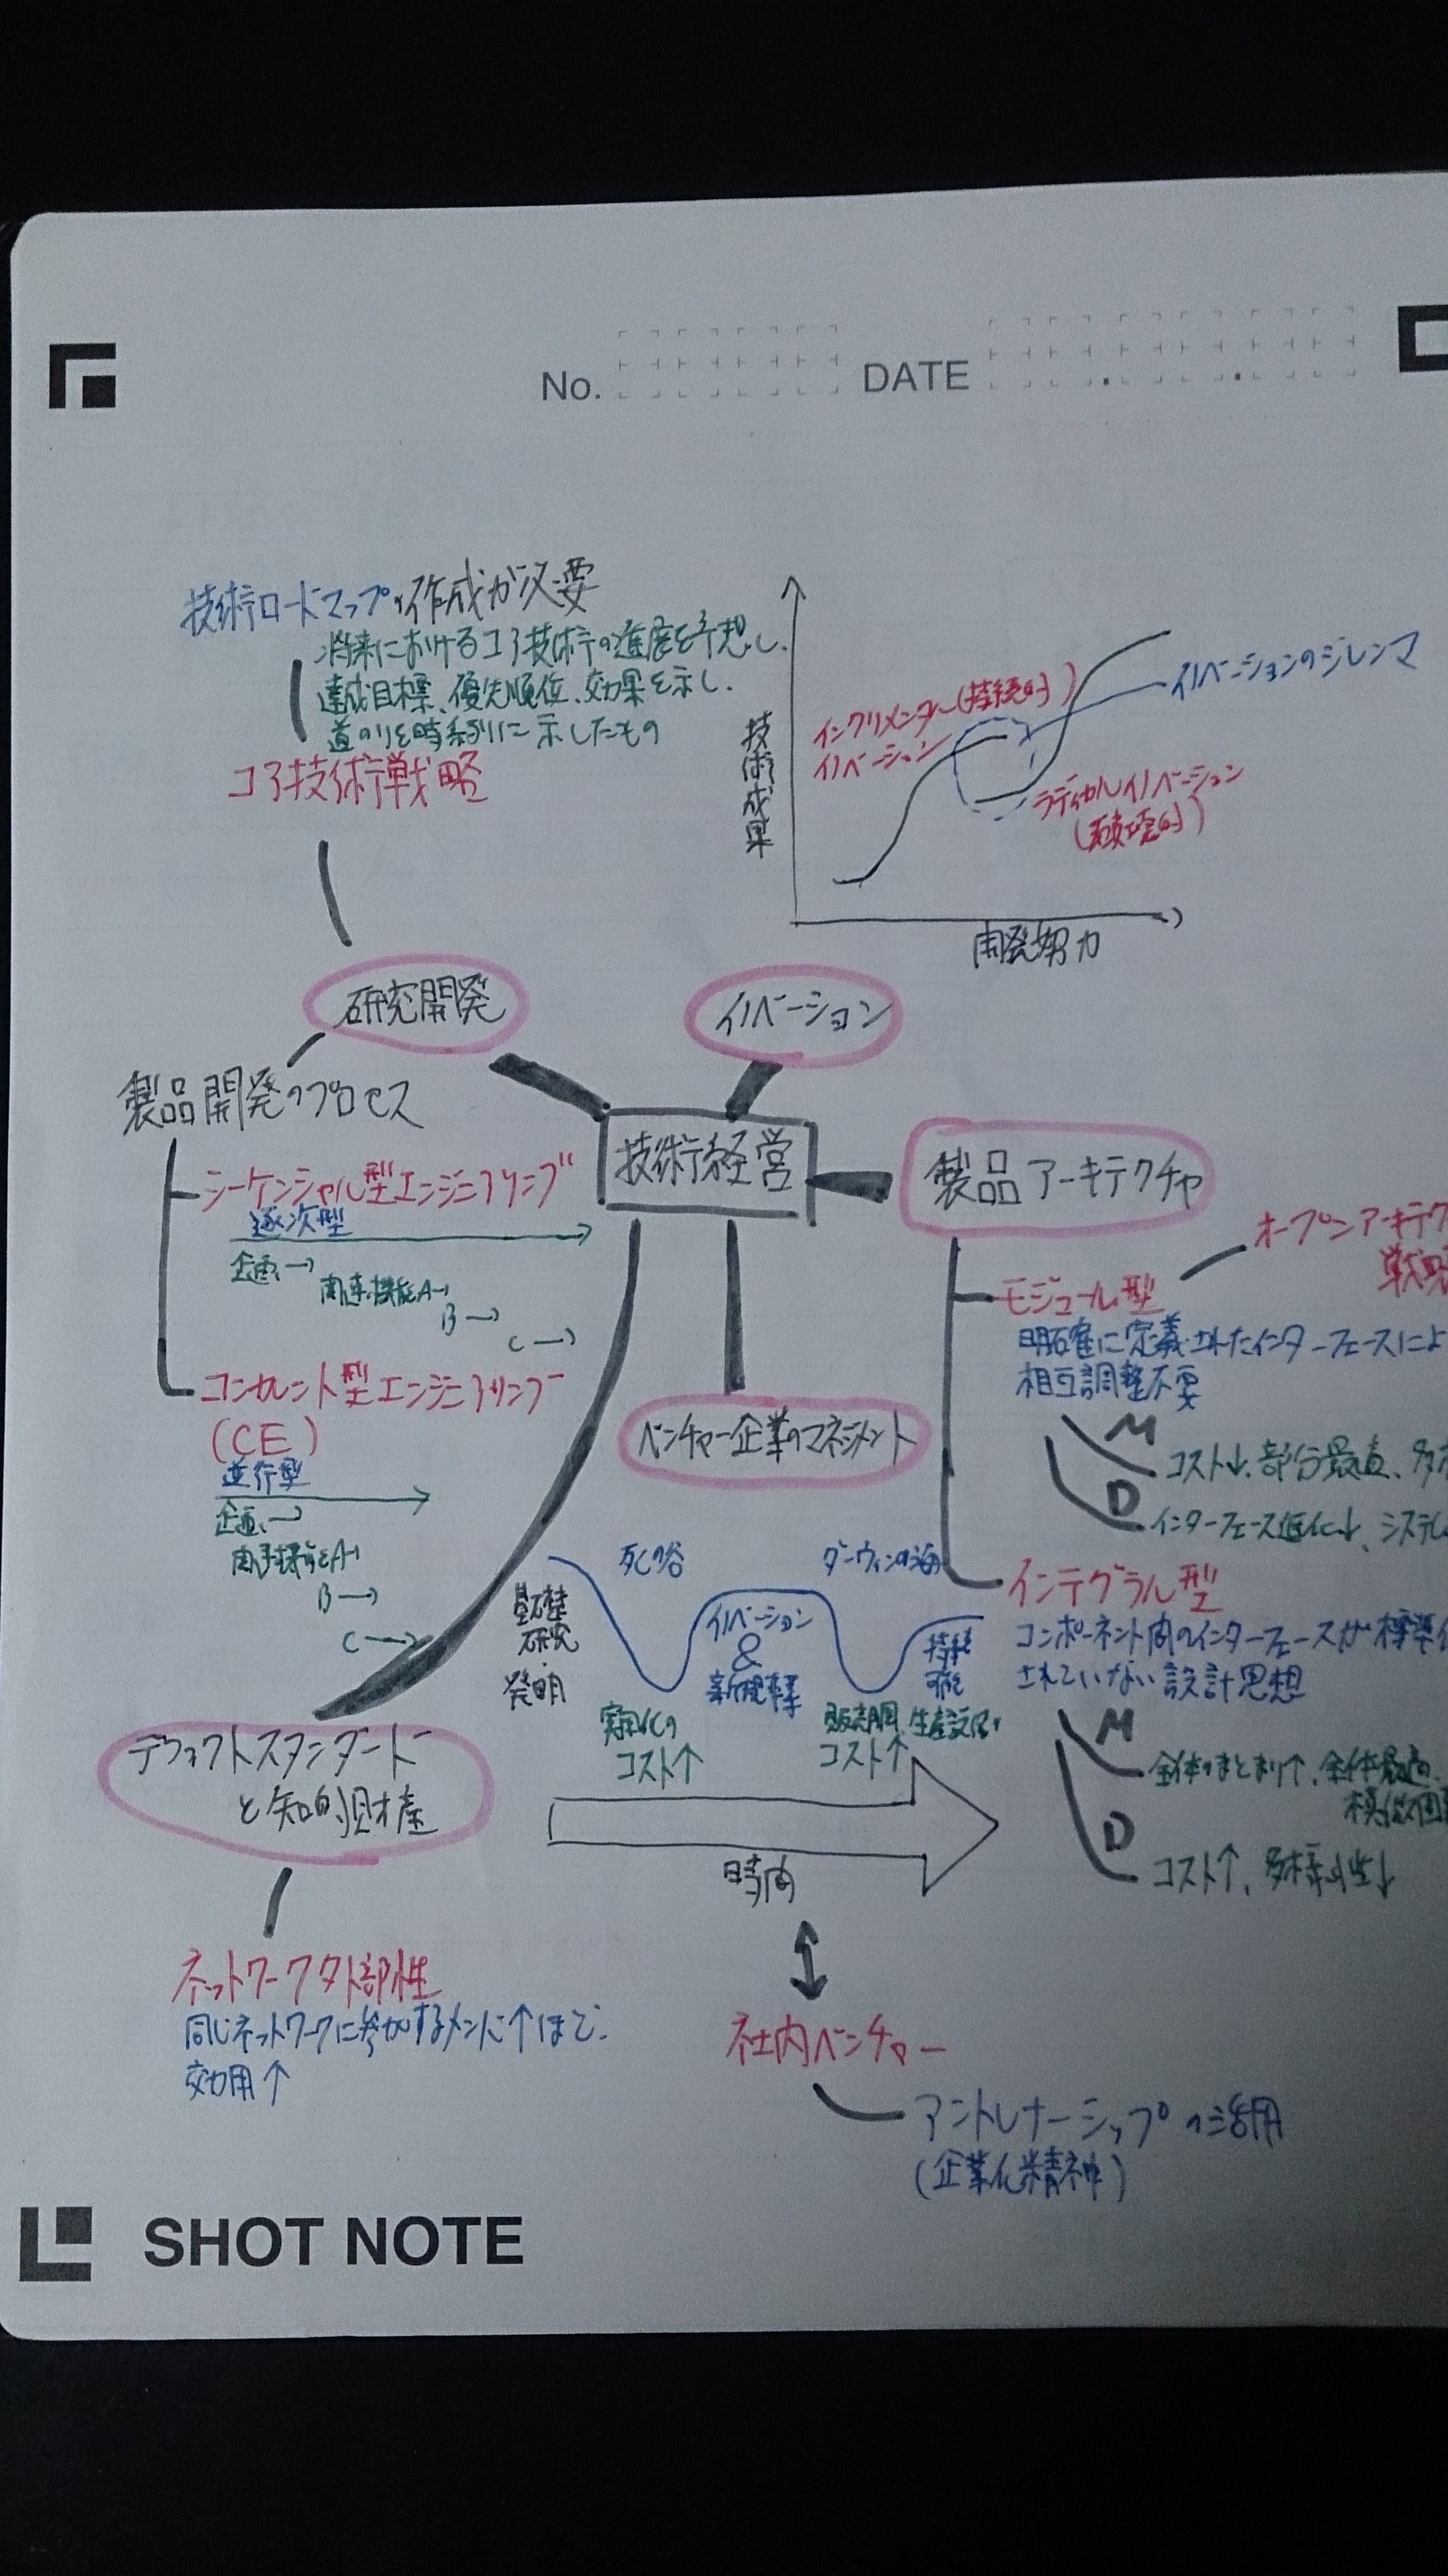 No. DATE
技術ロードマップの作成が必要
将来におけるコア技術の進展を予想し、
達成目標、優先順位、効果を示し、
道のりを時系列に示したもの
コア技術戦略
技術成果
インクリメンタル(持続的)
イノベーション
イノベーションのジレンマ
ラディカルイノベーション
開発努力
研究開発
イノベーション
製品開発のプロセス
技術経営
製品アーキテクチャ
シーケンシャル型エンジニアリング
逐次型
企画→
機能A→
B→
C→
コンカレント型エンジニアリング
(CE)
並行型
企画→
B→
C→
オープンアーキテク
戦略
モジュール型
明確に定義されたインターフェースによ
相互調整不要
M
コスト↓、部分最適、多
D
インターフェース進化↓、システム
ベンチャー企業のマネジメント
インテグラル型
コンポーネント間のインターフェースが標準化
されていない設計思想
M
全体のまとまり↑、全体最適、
模倣困
D
コスト↑、多様性↓
死の谷
ダーウィンの海
基礎
研究
発明
イノベーション
&
新規事業
持続
可能
実用化の
コスト↑
販売網、生産設備
コスト↑
時間
デファクトスタンダード
と知的財産
ネットワーク外部性
同じネットワークに参加するメンバー↑ほど、
効用↑
社内ベンチャー
アントレナーシップの活用
(企業化精神)
SHOT NOTE